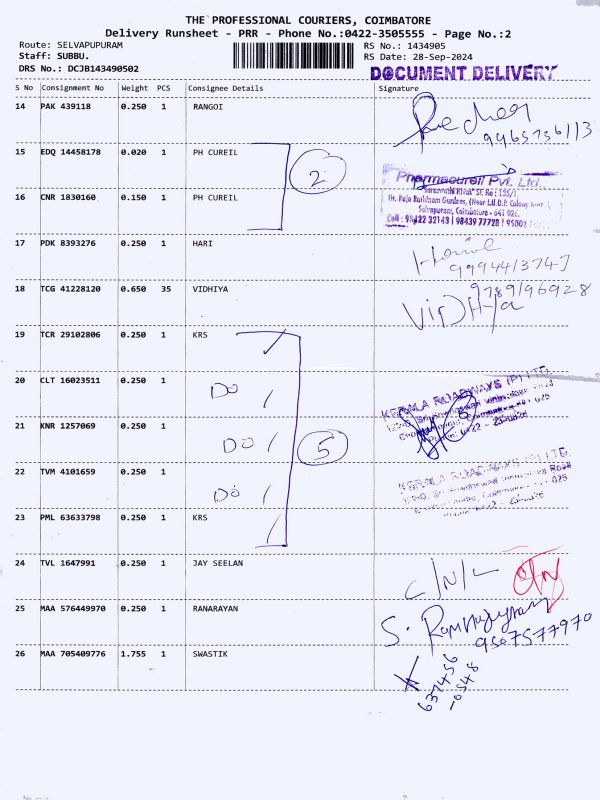 THE PROFESSIONAL COURIERS, COIMBATORE
Delivery Runsheet - PRR - Phone No.:0422-3505555 - Page No.:2
Route: SELVAPUPURAM RS No.: 1434905
Staff: SUBBU. RS Date: 28-Sep-2024
DRS No.: DCJB143490502 DOCUMENT DELIVERY
S No Consignment No Weight PCS Consignee Details Signature
14 PAK 439118 0.250 1 RANGOI
9965756113
15 EDQ 14458178 0.020 1 PH CUREIL
2
Pharmacureil Pvt. Ltd.
16 CNR 1830160 0.150 1 PH CUREIL
Selvapuram, Coimbatore - 641 026.
Cell : 98422 32143 | 98439 77728 |
17 PDK 8393276 0.250 1 HARI
18 TCG 41228120 0.650 35 VIDHIYA
9789196928
VIDHYA
19 TCR 29102806 0.250 1 KRS
20 CLT 16023511 0.250 1
DO
KERALA ROADWAYS (P) LTD.
21 KNR 1257069 0.250 1
DO 5
22 TVM 4101659 0.250 1
DO
KERALA ROADWAYS (P) LTD.
23 PML 63633798 0.250 1 KRS
24 TVL 1647991 0.250 1 JAY SEELAN
C/N/L
25 MAA 576449970 0.250 1 RANARAYAN
9507577970
26 MAA 705409776 1.755 1 SWASTIK
637456
-0548